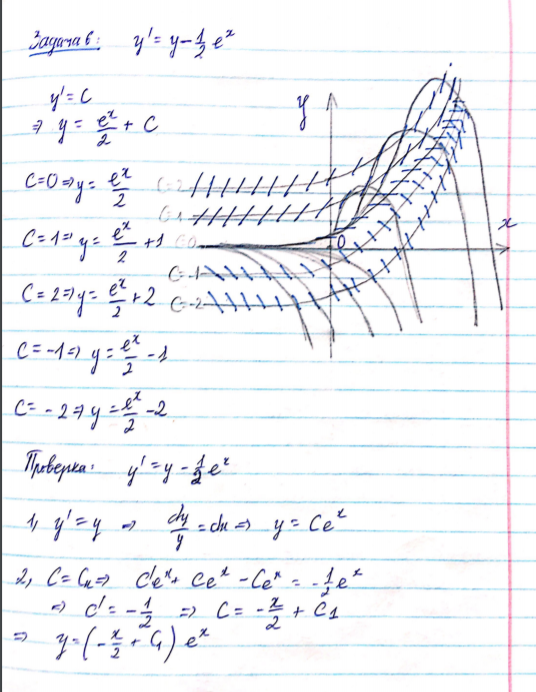 Задача 6: y' = y - 1/2 e^x
y' = C
⇒ y = e^x/2 + C
C=0 ⇒ y = e^x/2
C=1 ⇒ y = e^x/2 + 1
C=2 ⇒ y = e^x/2 + 2
C=-1 ⇒ y = e^x/2 - 1
C=-2 ⇒ y = e^x/2 - 2
y
x
0
C=2
C=1
C=0
C=-1
C=-2
Проверка: y' = y - 1/2 e^x
1, y' = y ⇒ dy/y = dx ⇒ y = Ce^x
2, C = Cx ⇒ C'e^x + Ce^x - Ce^x = -1/2 e^x
⇒ C' = -1/2 ⇒ C = -x/2 + C1
⇒ y = (-x/2 + C1) e^x